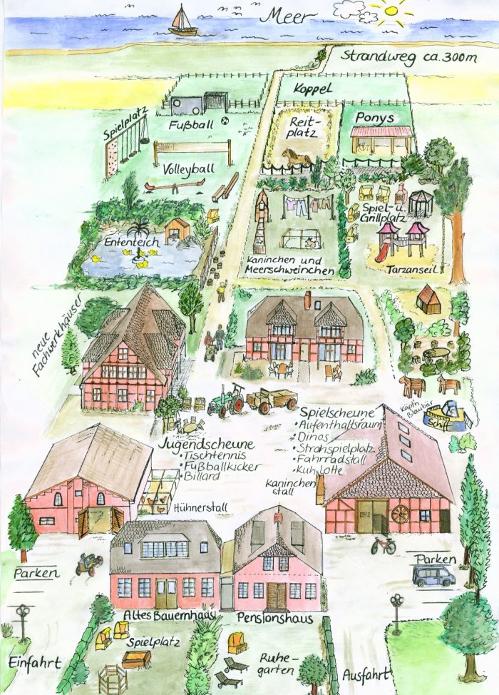 Meer
Strandweg ca. 300m
Koppel
Spielplatz
Fußball
Reit-
platz
Ponys
Volleyball
Spiel- u.
Grillplatz
Ententeich
Kaninchen und
Meerschweinchen
Tarzanseil
neue
Fachwerkhäuser
Käptn
Blaubär
Spielscheune
• Aufenthaltsraum
• Dinos
• Strohspielplatz
• Fahrradstall
• Kuh Lotte
Jugendscheune
• Tischtennis
• Fußballkicker
• Billard
Kaninchen
stall
Hühnerstall
Parken
Parken
Altes Bauernhaus
Pensionshaus
Einfahrt
Spielplatz
Ruhe-
garten
Ausfahrt